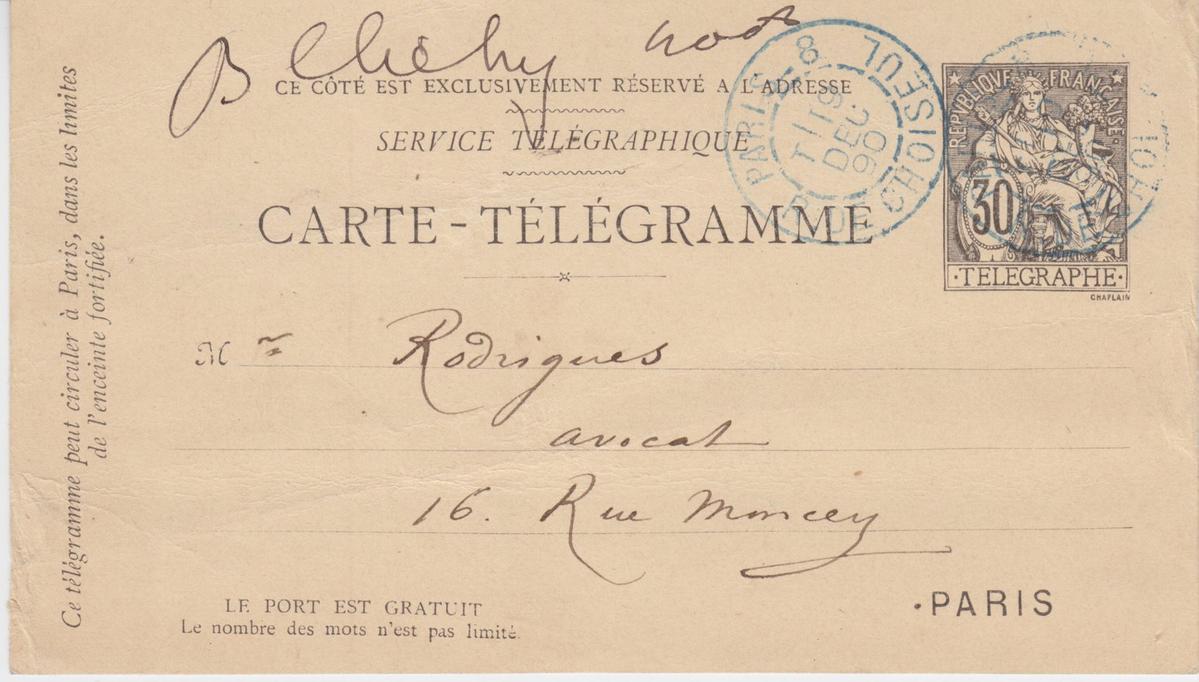 B Clichy
CE CÔTÉ EST EXCLUSIVEMENT RÉSERVÉ A L'ADRESSE
SERVICE TÉLÉGRAPHIQUE
CARTE-TÉLÉGRAMME
PARIS - 8
RUE CHOISEUL
19
DEC
90
REPVBLIQVE FRANÇAISE
30
·TELEGRAPHE·
CHAPLAIN
Mr Rodrigues
avocat
16. Rue Moncey
·PARIS
LE PORT EST GRATUIT
Le nombre des mots n'est pas limité.
Ce télégramme peut circuler à Paris, dans les limites
de l'enceinte fortifiée.